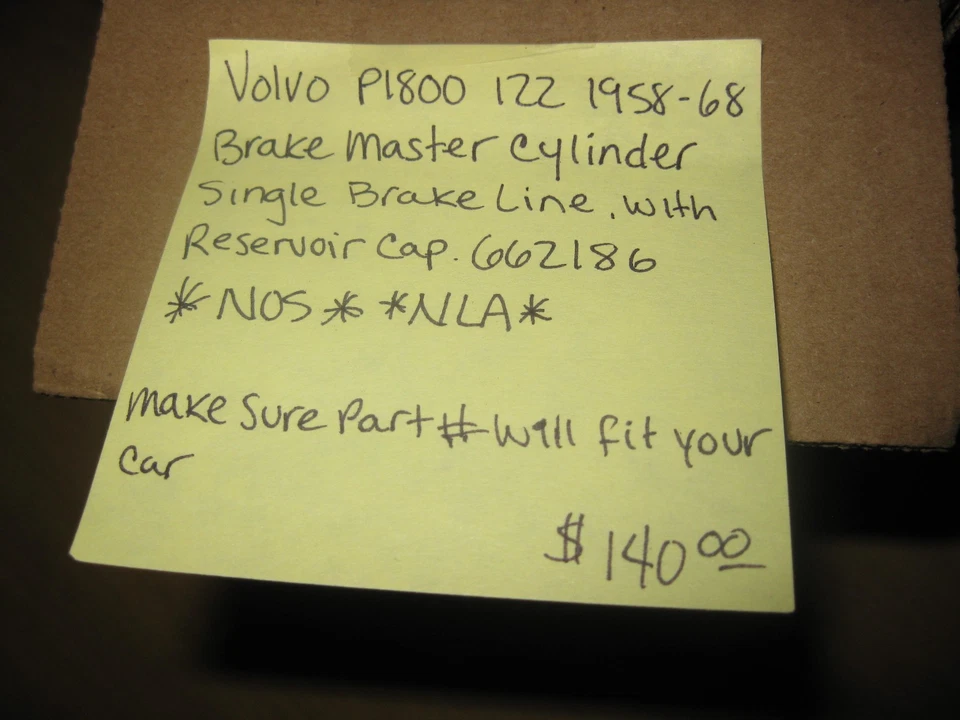 Volvo P1800 122 1958-68
Brake Master Cylinder
Single Brake Line, with
Reservoir Cap. 662186
*NOS* *NLA*
make sure Part # will fit your
car
$140.00